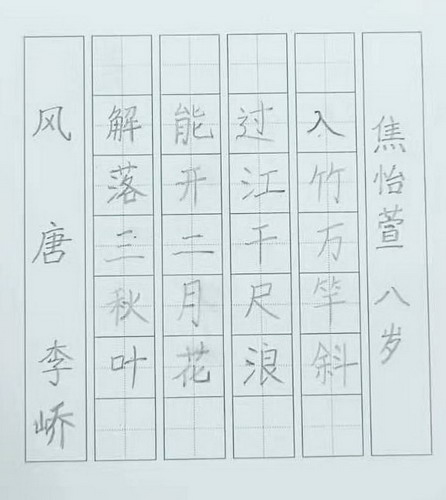 风 唐 李峤
解落三秋叶
能开二月花
过江千尺浪
入竹万竿斜
焦怡萱 八岁